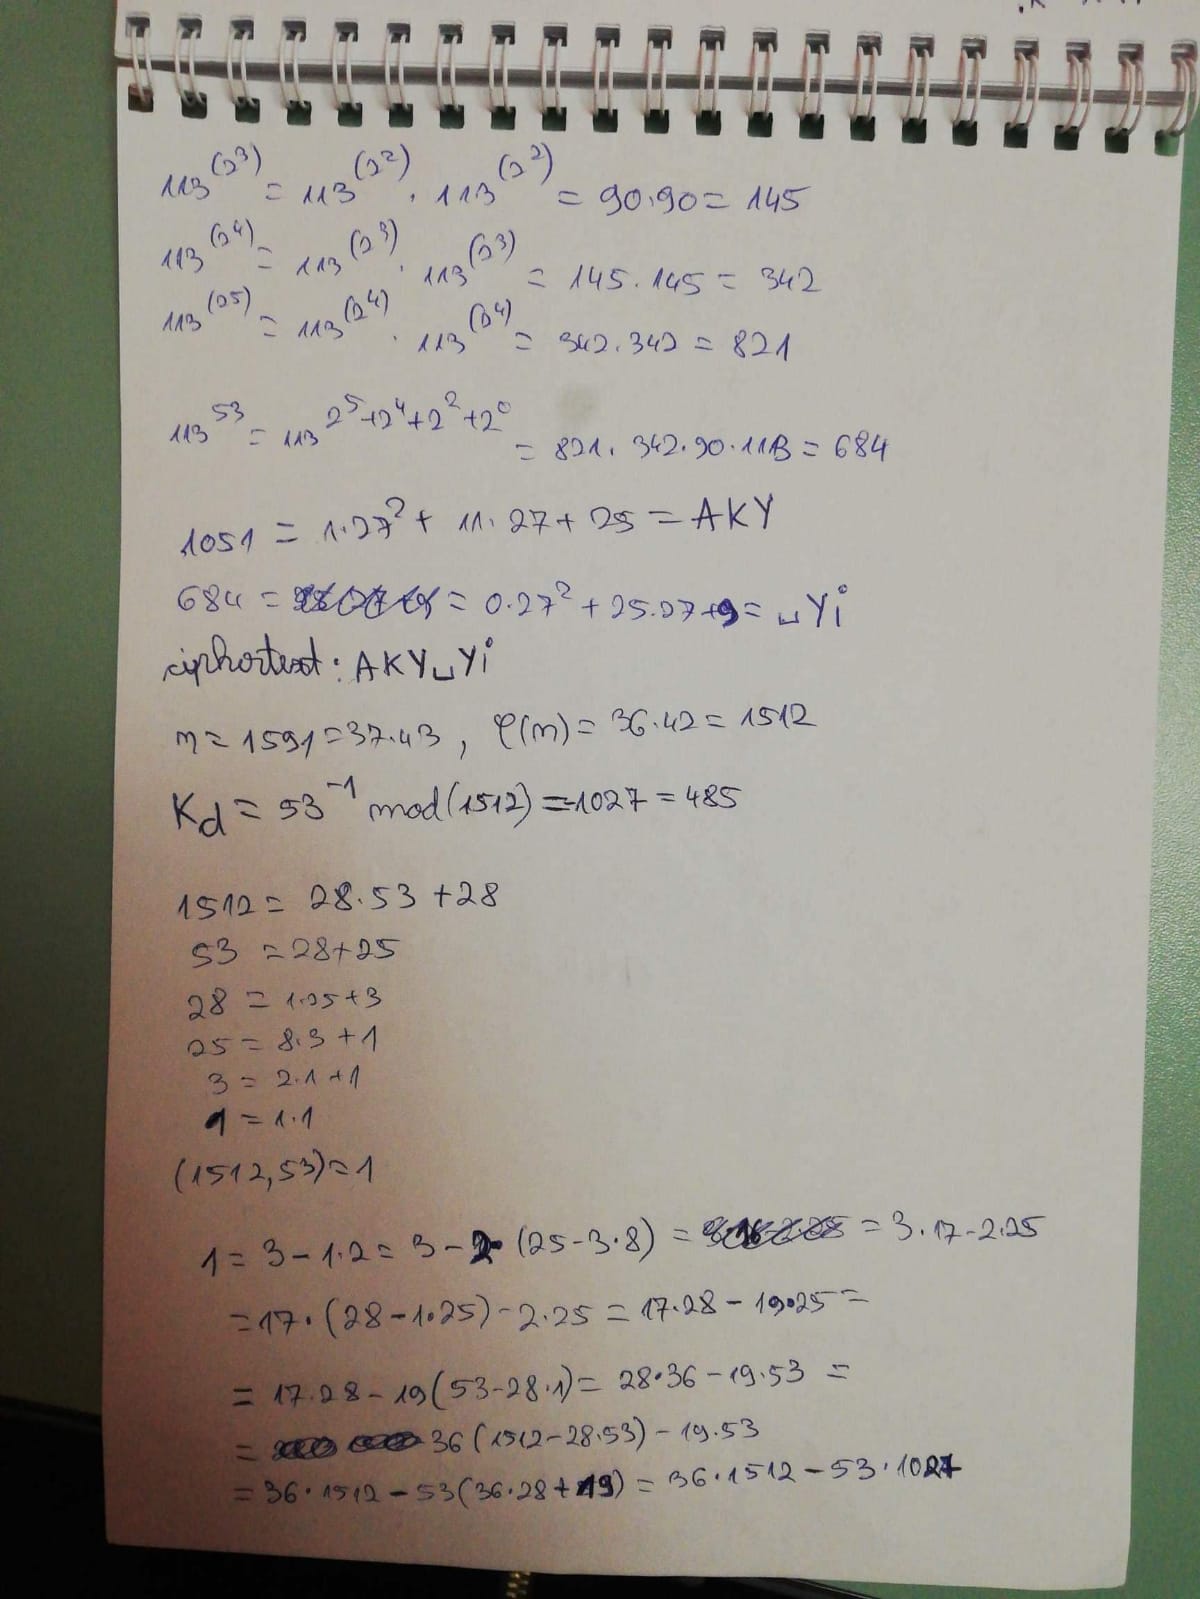 113^(2^3) = 113^(2^2) · 113^(2^2) = 90·90 = 145
113^(2^4) = 113^(2^3) · 113^(2^3) = 145·145 = 342
113^(2^5) = 113^(2^4) · 113^(2^4) = 342·342 = 821
113^53 = 113^(2^5+2^4+2^2+2^0) = 821·342·90·113 = 684
1051 = 1·27^2 + 11·27 + 25 = AKY
684 = = 0·27^2 + 25·27+9 = ␣Yi
ciphertext: AKY␣Yi
n = 1591 = 37·43, φ(n) = 36·42 = 1512
K_d = 53^-1 mod(1512) = -1027 = 485
1512 = 28·53 + 28
53 = 28+25
28 = 1·25+3
25 = 8·3+1
3 = 2·1+1
1 = 1·1
(1512,53) = 1
1 = 3 - 1·2 = 3 - 2· (25-3·8) = = 3·17-2·25
= 17·(28-1·25) - 2·25 = 17·28 - 19·25 =
= 17·28 - 19(53-28·1) = 28·36 - 19·53 =
= 36(1512-28·53) - 19·53
= 36·1512 - 53(36·28+19) = 36·1512 - 53·1027